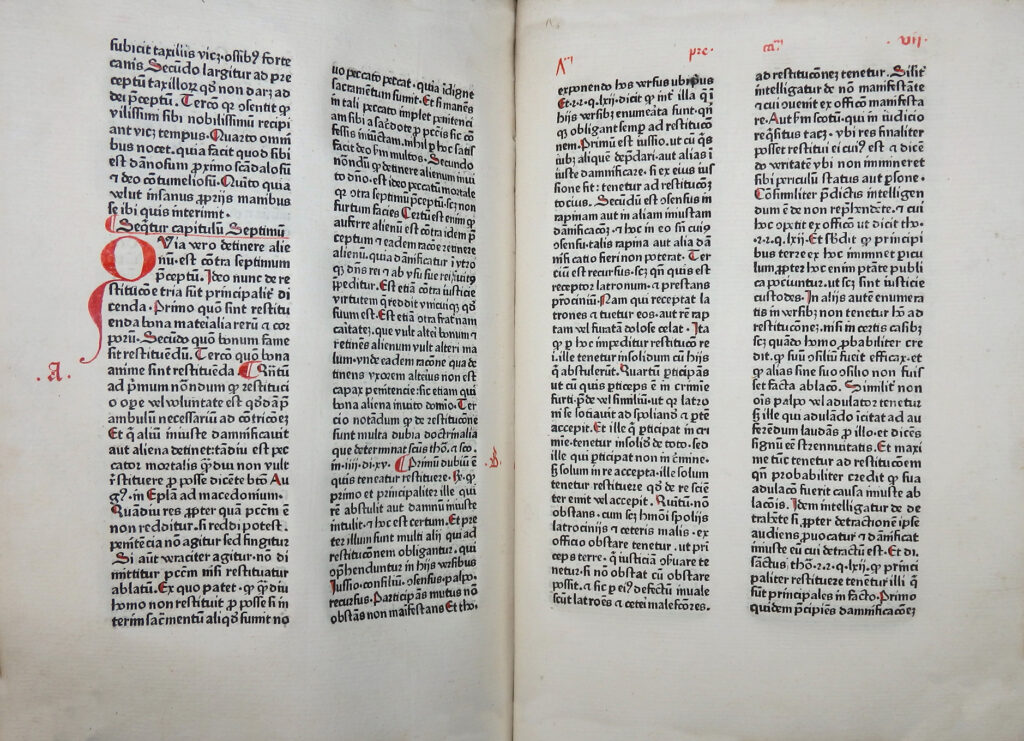 subicit taxillis vicꝫ. ossibꝰ forte
canis Secūdo largitur ad pre
ceptū taxilloꝝ qḋ non darꝫ ad
dei p̄ceptū. Tercō ꝙ ↄsentit ꝙ
vilissimi sibi nobilissimū recipi
ant vicꝫ tempus. Quarto omni
bus nocet. quia facit quod sibi
est dānosum ꝓximo scādalosū
⁊ deo cōtumeliosū. Quīto quia
velut insanus ꝓprijs manibus
se ibi quis interimit.
Seq̄tur capitulū Septimū
Via vero detinere alie
nū. est cōtra septimum
p̄ceptū. Ideo nunc de re
stitucōe tria sūt principalit̄ di
cenda. Primo quō sint restitu
enda bona mateialia rerū ⁊ cor
poꝝ. Secūdo quō bonum fame
sit restituēdū. Tercō quō bona
anime sint restituēda Quītū
ad p̄mum nōndum ꝙ restituci
o ope vel voluntate est qḋdā p̄
ambulū necessariū ad cōtricōeꝫ
Et q̄ aliū iniuste damnificauit
aut aliena detinet: tādiu est pec
cator mortalis q̄ diu non vult
r̄stituere ꝓ posse dicēte btō Au
gꝰ. in Epl̄a ad macedonium.
Quādiu res ꝓpter quā pcc̄m ē
non redditur. si reddi potest.
penitēcia nō agitur sed fingitur
Si aūt veraciter agitur. nō di
mittitur pcc̄m nisi restituatur
ablatū. Ex quo patet. ꝙ q̄ diu
homo non restituit ꝓ posse si in
terim sac̄mentū aliqḋ sumit no
.A.
uo peccato peccat. quia īdigne
sacramētum sumit. Et si manēs
in tali peccato implet penitenci
am sibi a sac̄dote ꝓ pcc̄is sic cō
fessis iniūctam. nihil ꝓ hoc satisfi
facit deo km̄ multos. Secundo
nōndū ꝙ detinere alienum inui
to dn̄o. est ideo pec̄atū mortale
qꝛ otra septimū p̄ceptū. scꝫ non
furtum facies Certū est enim ꝙ
auferre alienū est cōtra idem p̄
ceptum ⁊ eadem racōe retinere
alienū. quia dānificatur ī vtro
qꝫ dn̄s rei ⁊ ab vsu sue rei
īpeditur. Est etiā cōtra iusticie
virtutem q̄ reddit vnicuiqꝫ qḋ
suum est. Est etiā otra frat̄nam
caitateꝫ. que vult alteri bonum ⁊
retinēs alienum vult alteri ma
lum. vnde eadem racōne qua de
tinens vxorem alteius non est
capax penitencie: sic etiam qui
bona aliena inuito domio. Ter
cio notādum ꝙ de restitucōne
sunt multa dubia doctrinalia
que determīat sctūs thō. ⁊ sco.
in. iiii. di. xv. Primū dubiū ē
quis teneatur restituere. Rꝫ. ꝙ
primo et principaliter ille qui
rē abstulit aut damnū iniuste
intulit. ⁊ hoc est certum. Et pre
ter illum sunt multi alij qui ad
restitucōnem obligantur. qui
ↄphenduntur in hijs versibus
Iussio. consiliū. ↄsensus. palpo.
recursus. Participās mutus nō
obstās non maifestans Et tho.
.B.
exponendo hos versus ubrpus
Et. 2. 2. q. lxii. dicit ꝙ int̄ illa q̄ ī
hijs v̄sibus enumerata sunt. qn̄
qꝫ obligant semp̄ ad restitucō
nem. Primū est iussio. ut cū q̄s
iubꝫ aliquē dep̄dari. aut alias ī
iuste damnificare. si ex eius ius
sione fit: tenetur ad restitucōeꝫ
tocius. Secūdū est ↄsensus in
rapinam aut in aliam iniustam
damnificacōeꝫ. ⁊ hoc in eo sn̄ cuiꝰ
ↄsensu talis rapina aut alia dā
nificatio fieri non poterat. Ter
ciū est recursus. scꝫ qn̄ quis est
receptor latronum. ⁊ prestans
prociniū. Nam qui receptat la
trones ⁊ tuetur eos. aut rē rap
tam vel furatā dolose celat. Ita
ꝙ ꝑ hoc impeditur restitucō re
i. ille tenetur insolidum cū hijs
q̄ abstulerūt. Quartū pticipās
ut cū quis pticeps ē in crimīe
furti. p̄de vel similiū. ut qꝛ latro
ni se sociauit ad spoliādū ⁊ ptē
accepit. Et ille q̄ pticipat in cri
mīe. tenetur insolidū de toto. sed
ille qui pticipat non in c̄mine.
sꝫ solum in re accepta. ille solum
tenetur restituere qḋ de re scien
ter emit vel accepit. Quītū. nō
obstans. cum scꝫ hmōi spolijs
latrocinijs ⁊ ceteris malis. ex
officio obstare tenetur. ut pri
ceps terre. q̄ iusticiā ↄseruare te
netur. si nō obstat cū obstare
possit. ⁊ sic ꝑ eiꝰ defectū inuale
scūt latroēs ⁊ cetei malefcōres.
A
pre.
.vij.
ad restitucōneꝫ tenetur. Silit̄
intelligatur de nō manifestāte
⁊ cui ↄuenit ex officō manifesta
re. Aut km̄ scotū. qui in iudicio
req̄situs tacꝫ. vbi res finaliter
posset restitui ei cuiꝰ est ⁊ dicē
do veritatē vbi non immineret
sibi periculū status aut ꝑsone.
Consimiliter p̄dictis intelligen
dum ē de non rep̄hendēte. ⁊ cui
hoc ↄpetit ex officō ut dicit tho.
.2. 2. q. lxii. Et sb̄dit ꝙ principi
bus terre ex hoc imminet picu
lum. ꝓpter hoc enim ptāte publi
ca pociuntur. ut scꝫ sint iusticie
custodes. In alijs autē enumera
tis in versibꝫ non tenetur hō ad
restitucōneꝫ. nisi in certis casibꝫ
scꝫ quādo homo ꝓbabiliter cre
dit. ꝙ suū ↄsiliū fuit efficax. et
ꝙ alias sine suo ↄsilio non fuis
set facta ablacō. Similit̄ non
oīs palpo vel adulator tenetur
sꝫ ille qui adulādo īcitat ad au
ferēdum laudās ꝓ illo. et dicēs
signū eē strennuitatis. Et maxi
me tūc tenetur ad restitucōem
qn̄ probabiliter credit ꝙ sua
adulacō fuerit causa iniuste ab
lacōis. Idem intelligatur de de
trahēte si ꝓpter detractionē ipse
audiens ꝓuocatur ⁊ dānificat
iniuste eū cui detractū est. Et di.
sctūs thō. 2. 2. q. lxii. ꝙ princi
paliter restituere tenetur illi q̄
sūt principales in facto. Primo
quidem p̄cipiēs damnificacōeꝫ